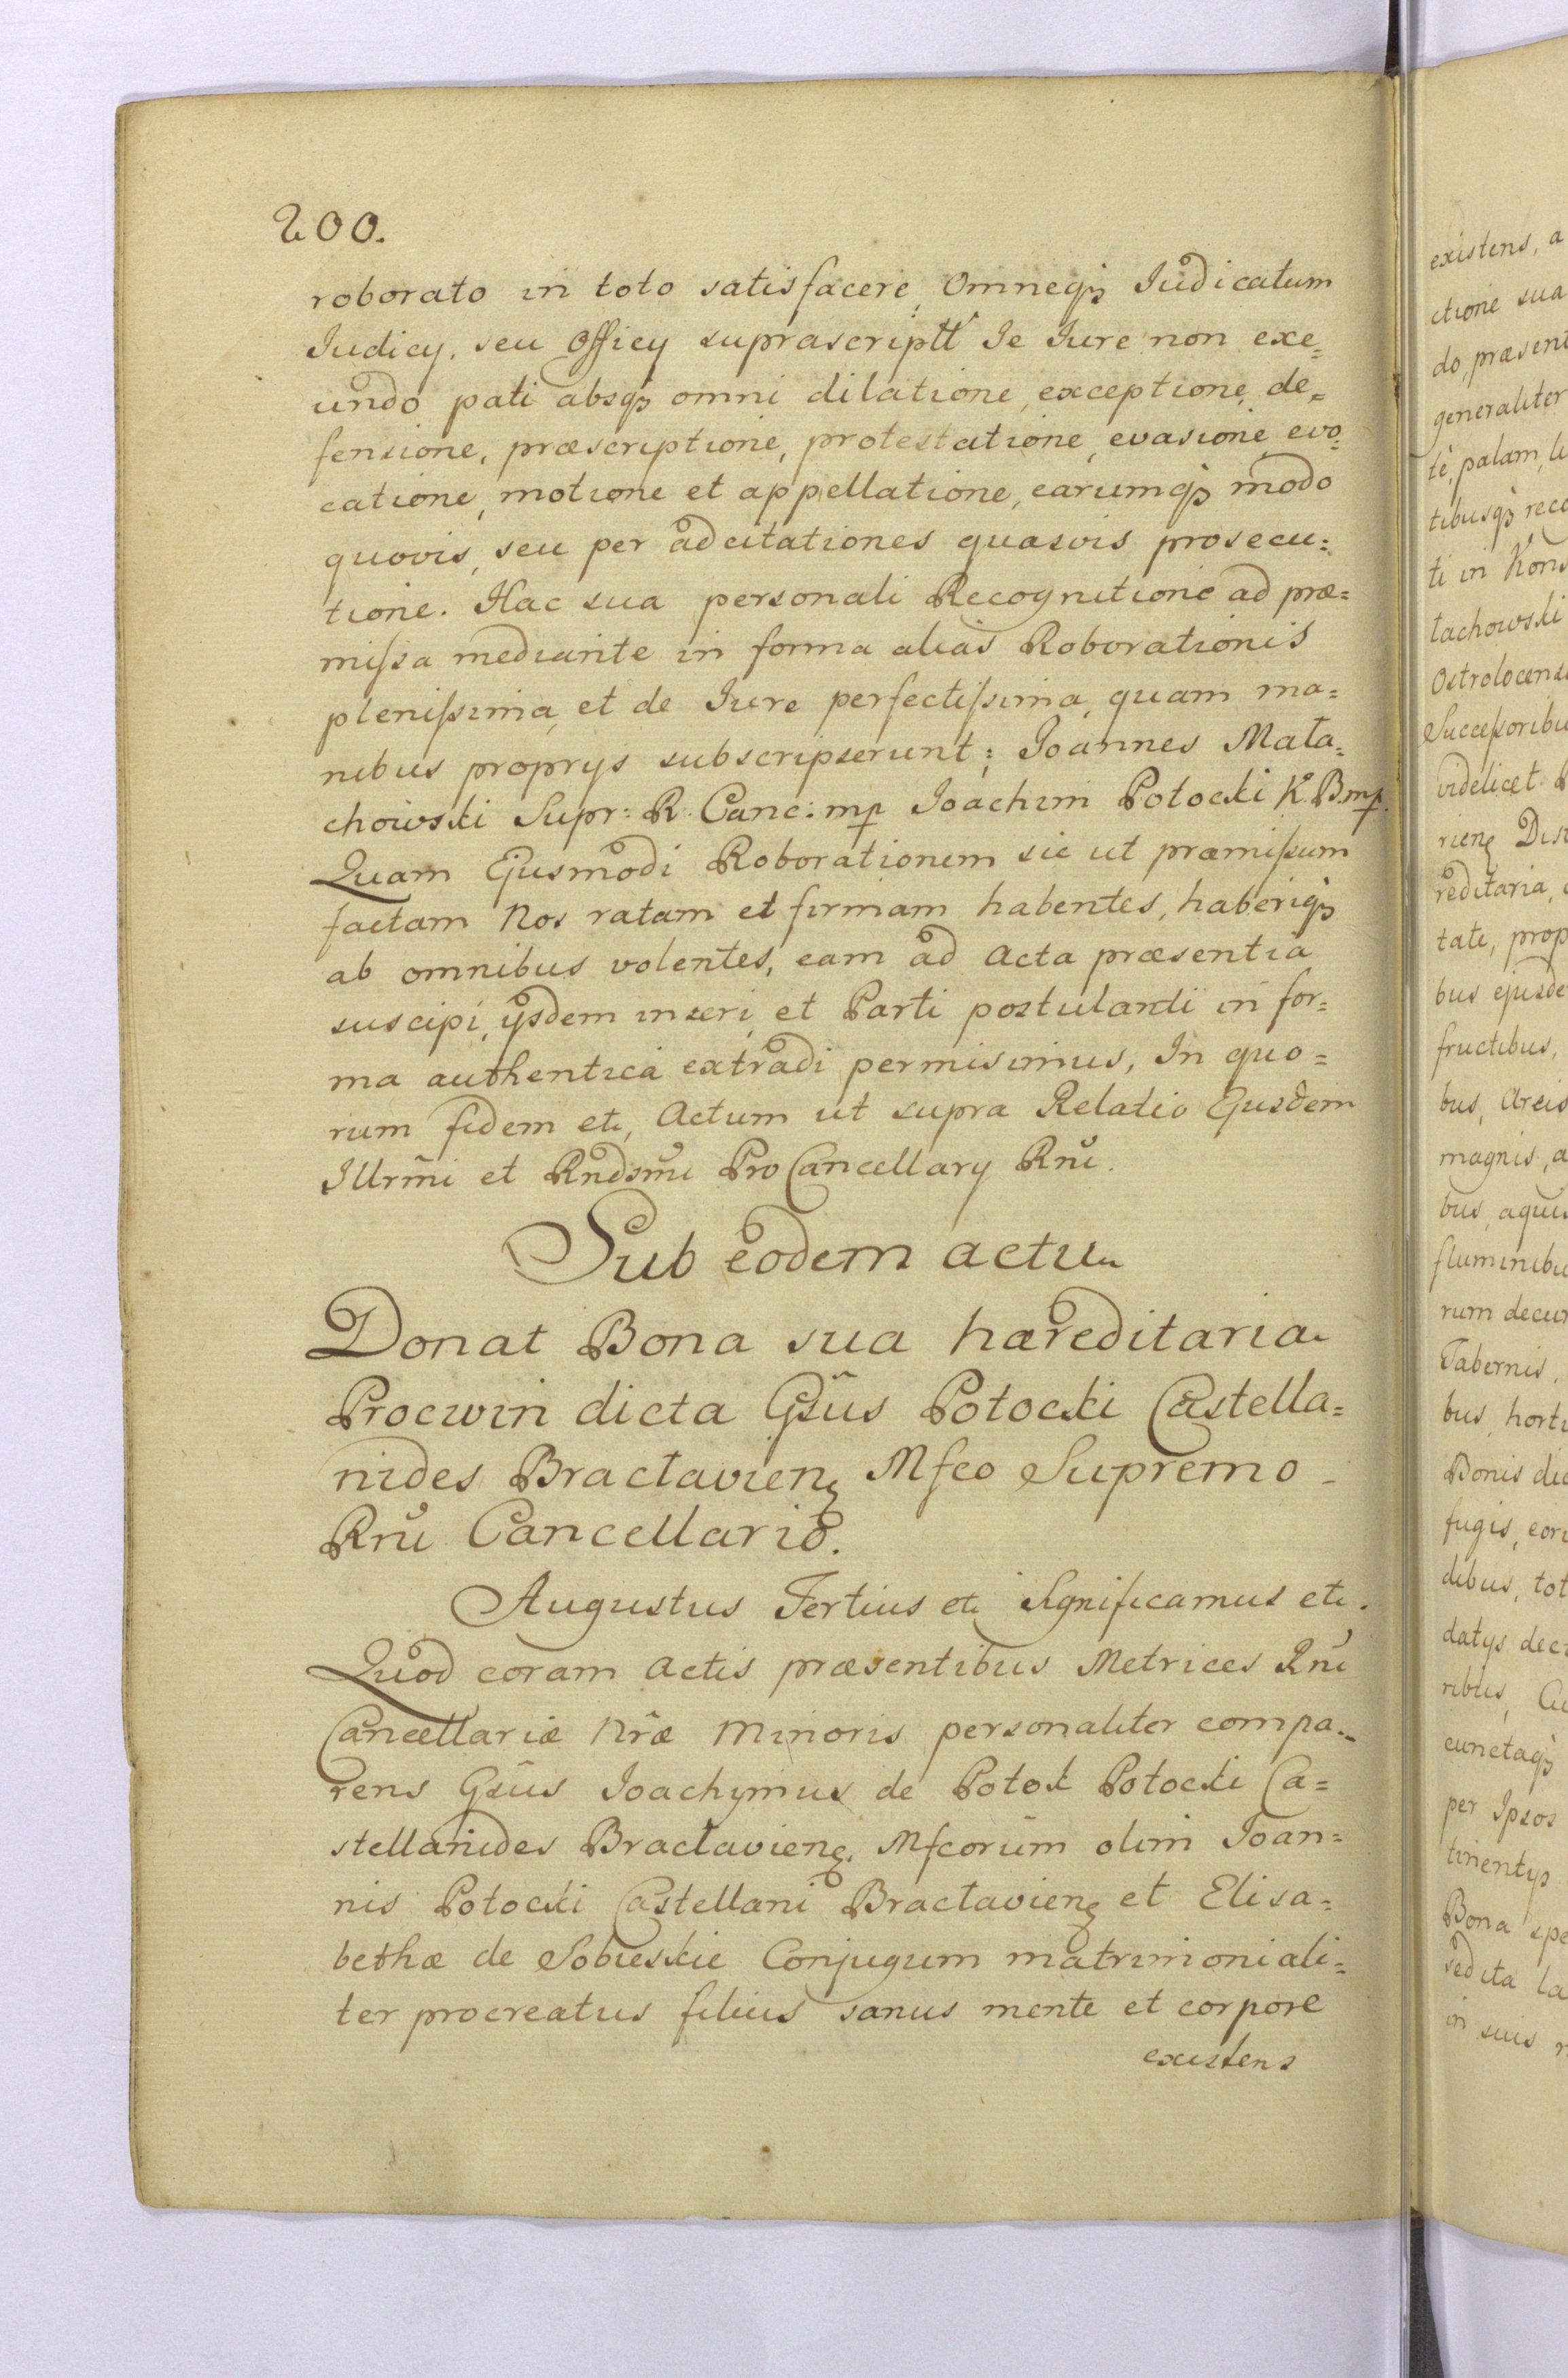 200.
roborato in toto satisfacere, Omneqꝫ Iudicatum
Iudicy, seu Officy suprascriptt Je Iure non exe=
undo pati absqꝫ omni dilatione, exceptione, de=
fensione, præscriptione, protestatione, evasione, evo=
catione, motione et appellatione, earumqꝫ modo
quovis, seu per adcitationes quasvis prosecu=
tione. Hac sua personali Recognitione ad præ=
missa mediante in forma alias Roborationis
plenissima, et de Iure perfectissima, quam ma=
nibus proprys subscripserunt; Joannes Mała=
chowski Supr: R. Canc: mp Joachim Potocki K. B. mp.
Quam Ejusmodi Roborationem sic ut præmissum
factam Nos ratam et firmam habentes, haberiqꝫ
ab omnibus volentes, eam ad Acta præsentia
suscipi, ysdem inseri, et Parti postulanti in for=
ma authentica extradi permisimus, In quo=
rum fidem etc, Actum ut supra Relatio Ejusdem
Illrm̃i et Rndsm̃i ProCancellary Rñi.
Sub eodem actu
Donat Bona sua hæreditaria
Procwin dicta Gsũs Potocki Castella=
nides Bractavienꝫ Mfco Supremo
Rñi Cancellario.
Augustus Tertius etc Significamus etc.
Quod coram Actis præsentibus Metrices Rñi
Cancellariæ Nr̃æ Minoris personaliter compa=
rens Gsũs Joachymus de Potok Potocki Ca=
stellanides Bractavienꝫ, Mfcorum olim Joan=
nis Potocki Castellani Bractavienꝫ et Elisa=
bethæ de Sobieskie Conjugum matrimoniali=
ter procreatus filius sanus mente et corpore
existens
existens, a
ctione sua
do, præsent
generaliter
tè, palam, li
tibusqꝫ reco
ti in Kons
łachowski
Ostrolocens
Successoribu
videlicet
rienꝫ Dis
reditaria,
tate, prop
bus ejusde
fructibus,
bus, Areis
magnis, a
bus, aquis
fluminibu
rum decur
Tabernis,
bus, horti
Bonis dic
fugis, eor
dibus, tot
datys dec
ribus, Cu
cunctaqꝫ
per Ipsos
tinentys
Bona spe
sedita la
in suis r